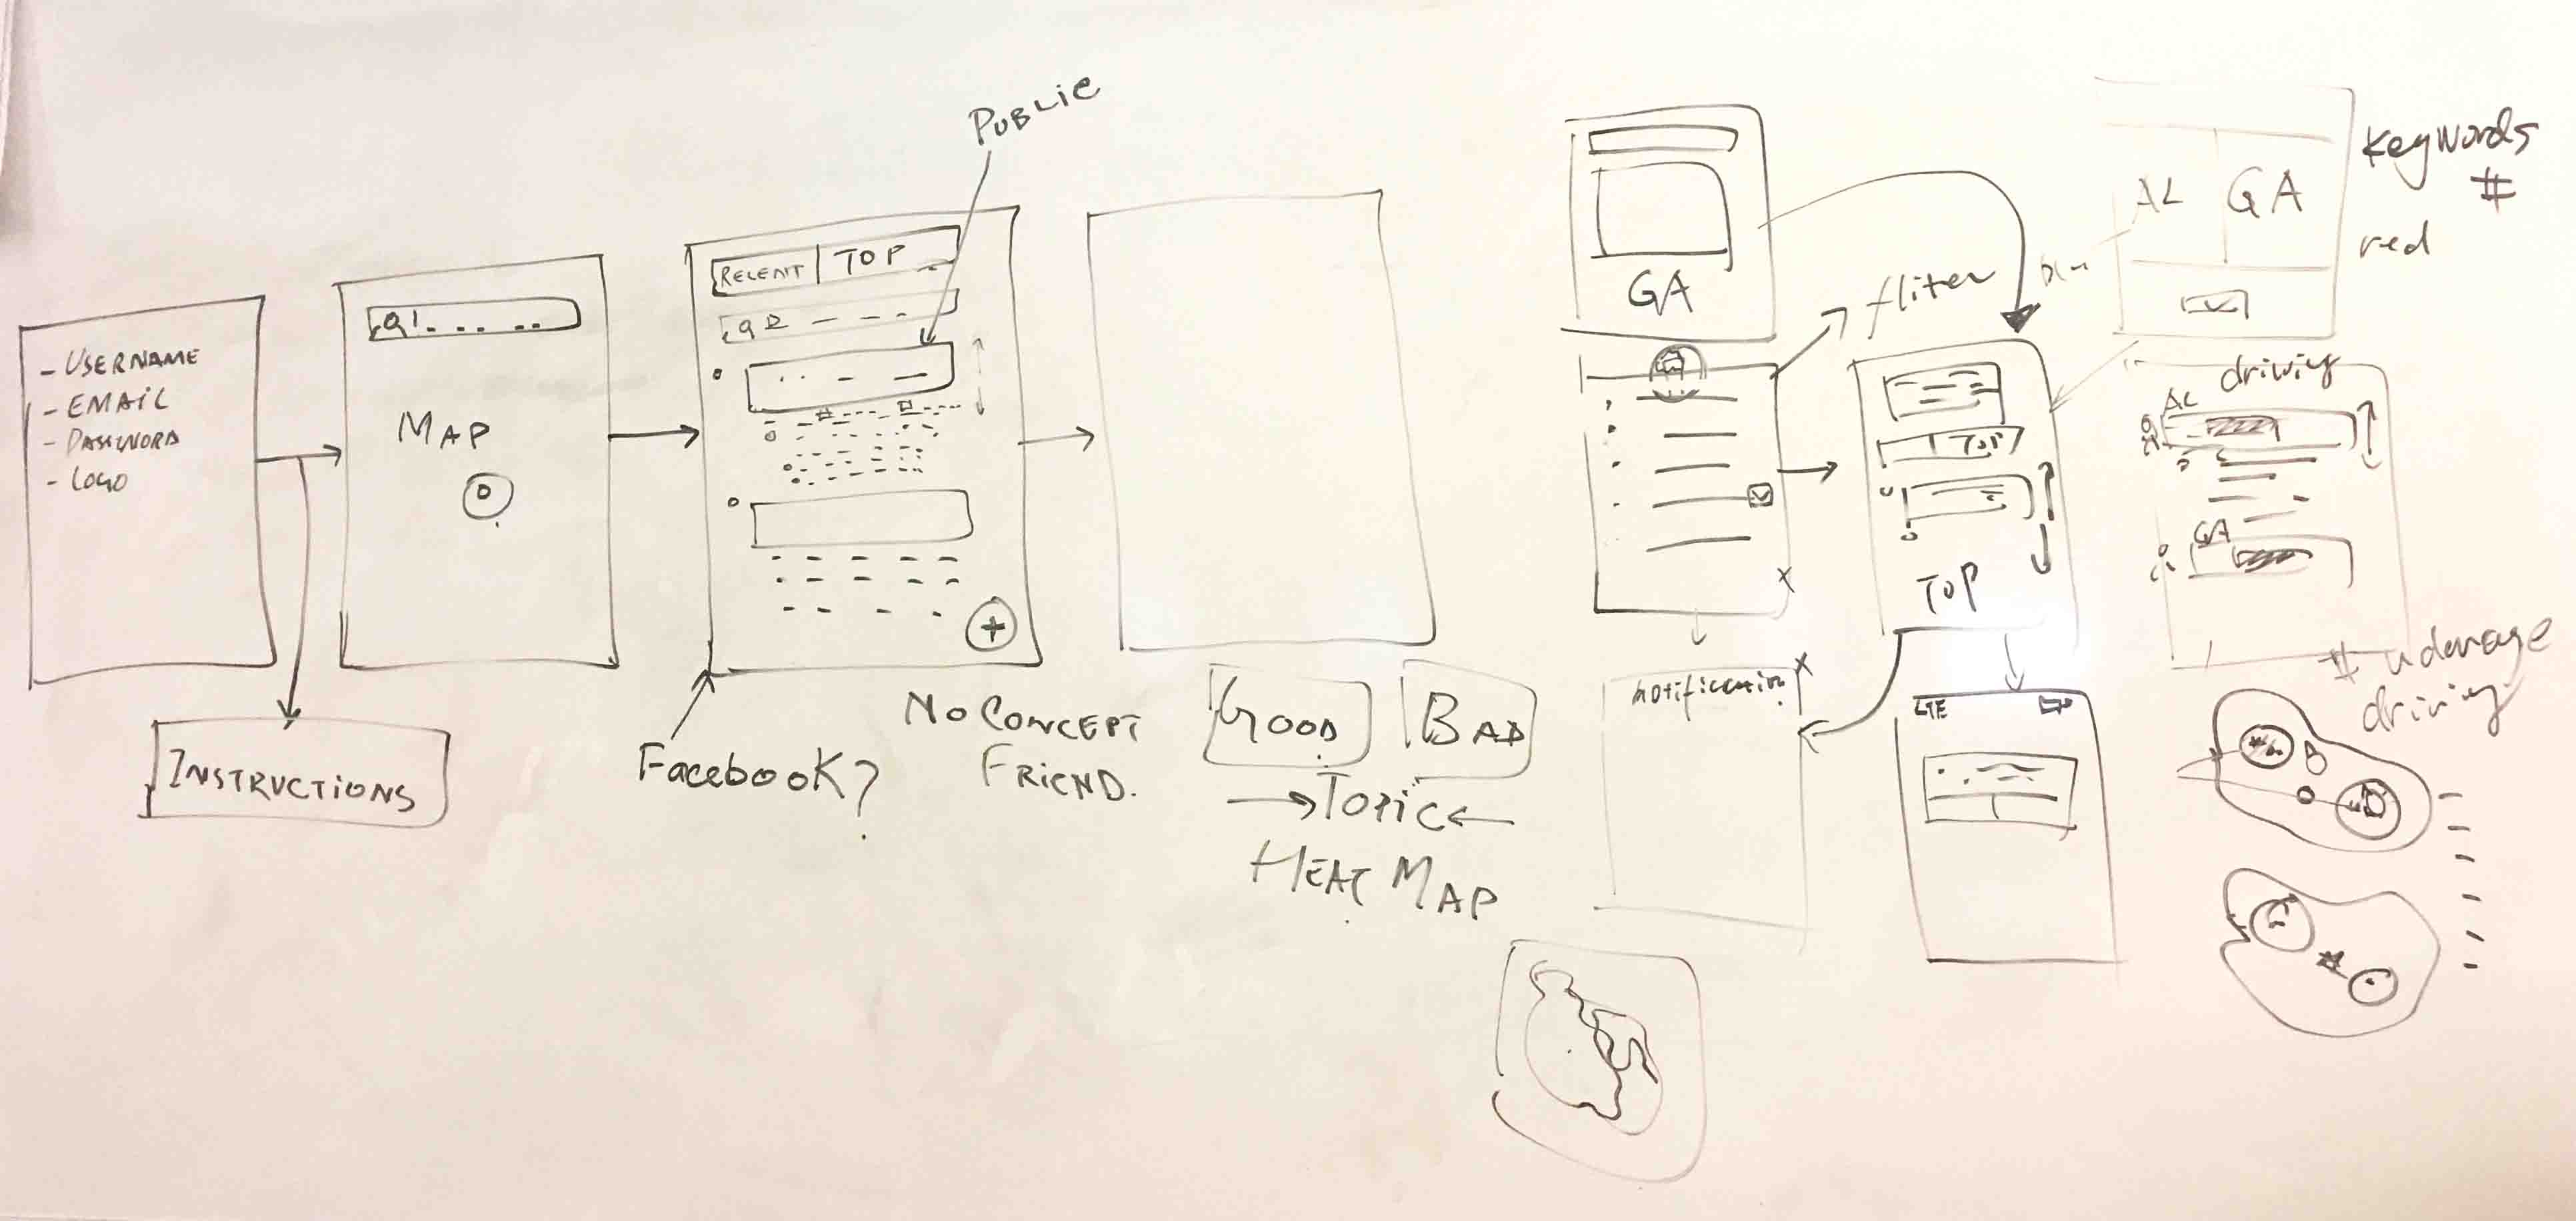 - USERNAME
- EMAIL
- PASSWORD
- LOGO
INSTRUCTIONS
Q1
MAP
PUBLIC
RECENT | TOP
Q2
Facebook?
NO CONCEPT
FRIEND.
GOOD
BAD
TOPIC
HEAT MAP
GA
fliter
notification
TOP
TOP
LTE
AL GA
Keywords
#
red
driving
AL
GA
driving